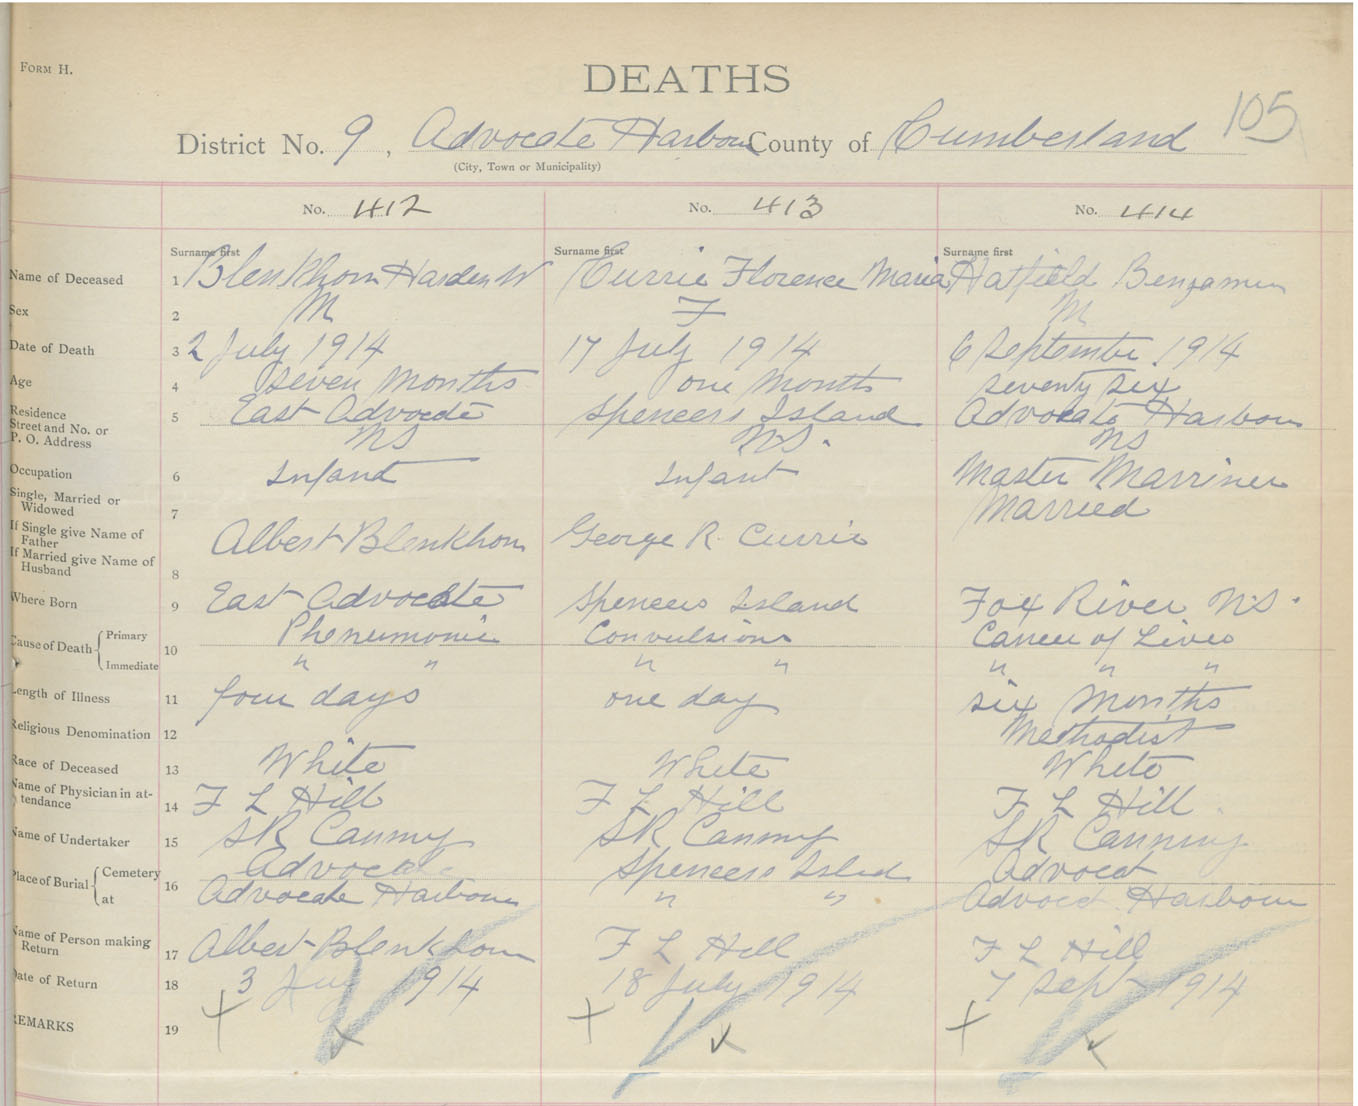 FORM H.
DEATHS
105
District No. 9, Advocate Harbour County of Cumberland
(City, Town or Municipality)
No. 412 No. 413 No. 414
Surname first Surname first Surname first
Name of Deceased 1 Blenkhorn Harden W Currie Florence Maria Hatfield Benjamin
Sex 2 M F M
Date of Death 3 2 July 1914 17 July 1914 6 September 1914
Age 4 Seven Months one Months Seventy Six
Residence Street and No. or P. O. Address 5 East Advocate Spencers Island Advocate Harbour
NS N.S. NS
Occupation 6 Infant Infant Master Marriner
Single, Married or Widowed 7 Married
If Single give Name of Father Albert Blenkhorn George R. Currie
If Married give Name of Husband 8
Where Born 9 East Advocate Spencers Island Fox River N.S.
Cause of Death Primary 10 Pheneumonia Convulsions Cancer of Liver
Immediate " " " " " " "
Length of Illness 11 four days one day six Months
Religious Denomination 12 Methodist
Race of Deceased 13 White White White
Name of Physician in attendance 14 F L Hill F L Hill F L Hill
Name of Undertaker 15 SR Canning SR Canning SR Canning
Place of Burial Cemetery 16 Advocate Spencers Island Advocat
at Advocate Harbour " " Advocat Harbour
Name of Person making Return 17 Albert Blenkhorn F L Hill F L Hill
Date of Return 18 3 July 1914 18 July 1914 7 Sep 1914
REMARKS 19